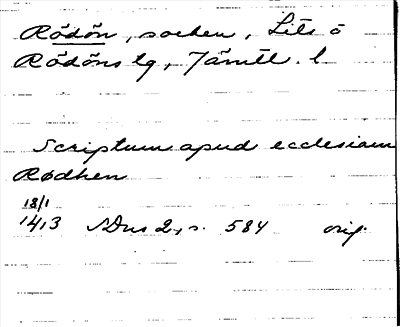 Rödön, socken, Lits o
Rödöns lg, Jämtl. l
Scriptum apud ecclesiam
Rødhen
18/1
1413 SDns 2, s. 584 orig.